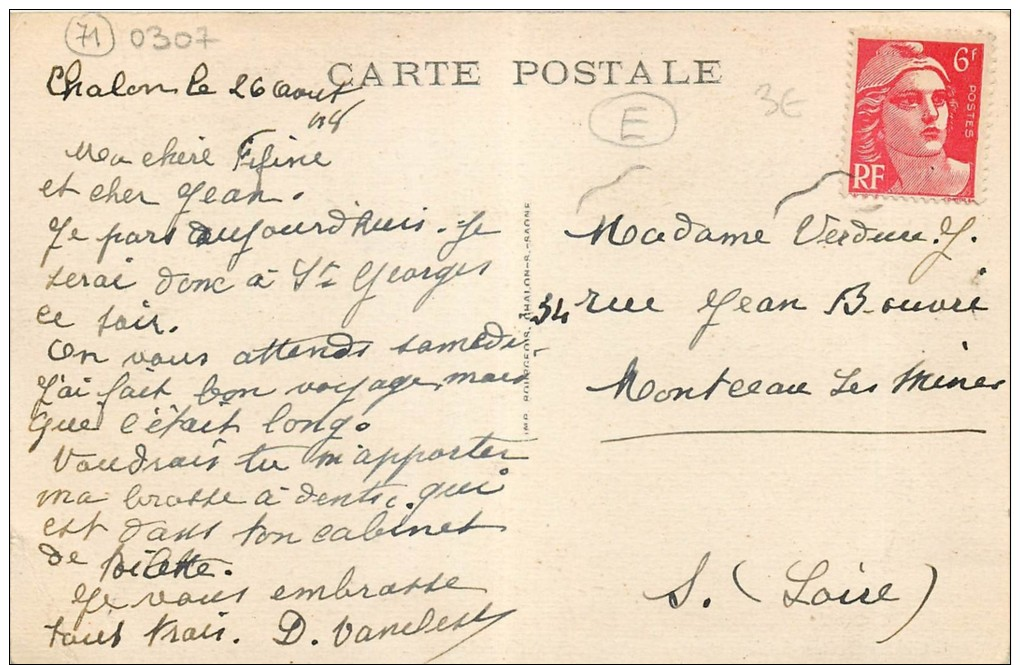 71 0307
CARTE POSTALE
Chalon le 26 Aout
E
3€
6F
POSTES
RF
Ma chère Fifine
et cher Jean.
Je pars aujourd'huis. Je
serai donc à St Georges
ce soir.
On vous attends samedi.
J'ai fait bon voyage, mais
que c'était long.
Voudrais tu m'apporter
ma brosse à dents. qui
est dans ton cabinet
de toilette.
Je vous embrasse
tous trois. D.
IMP. BOURGEOIS, CHALON-S.-SAONE
Madame Verdure. J.
34 rue Jean Bouveri
Montceau Les Mines
S. (Loire)